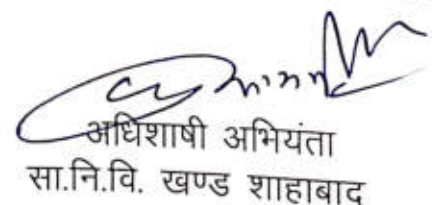 अधिशाषी अभियंता
सा.नि.वि. खण्ड शाहाबाद